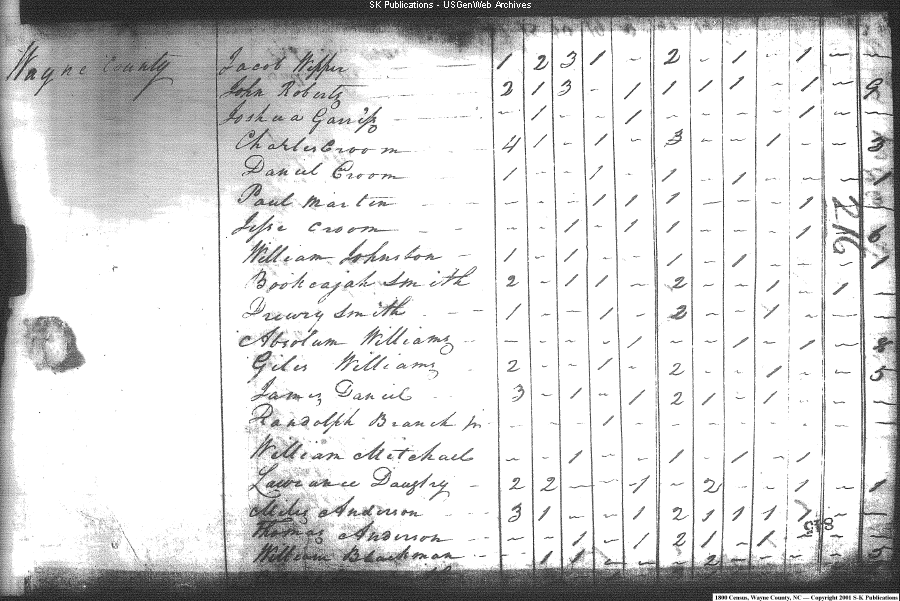 SK Publications - USGenWeb Archives
Wayne County
Jacob Pipper 1 2 3 1 - 2 - 1 - 1 - 1
John Roberts 2 1 3 - 1 1 1 1 - 1 - 9
Joshua - 1 - - 1 - - - - 1 - 1
Charles Croom 4 1 - 1 - 3 - - 1 - - 3
Daniel Croom 1 - - 1 - 1 - 1 - - - 1
Paul Martin - - - 1 1 1 - - - 1 -
Jesse Croom - - 1 - 1 1 - - - 1 - 6
William Johnston 1 - 1 - - 1 - 1 - - - 1
Bookeajah Smith 2 - 1 1 - 2 - - 1 - 1 1
Drewry Smith 1 - - 1 - 2 - - 1 - - 1
Absolum Williams - - - - 1 - - 1 - 1 - 8
Giles Williams 2 - - 1 - 2 - - 1 - - 5
James Daniel 3 - 1 - 1 2 1 - 1 - - 1
Randolph Branch jr - - - 1 - - - - - - - 1
William Mitchael - - 1 - - 1 - 1 - 1 -
Lawrance Daugtry 2 2 - - 1 - 2 - - 1 - 1
Miles Anderson 3 1 - - 1 2 1 1 1 - 1
Thomas Anderson - - 1 - 1 2 1 - 1
William Blackman - 1 1 - - - 2 - - - - 5
216
1800 Census, Wayne County, NC — Copyright 2001 S-K Publications